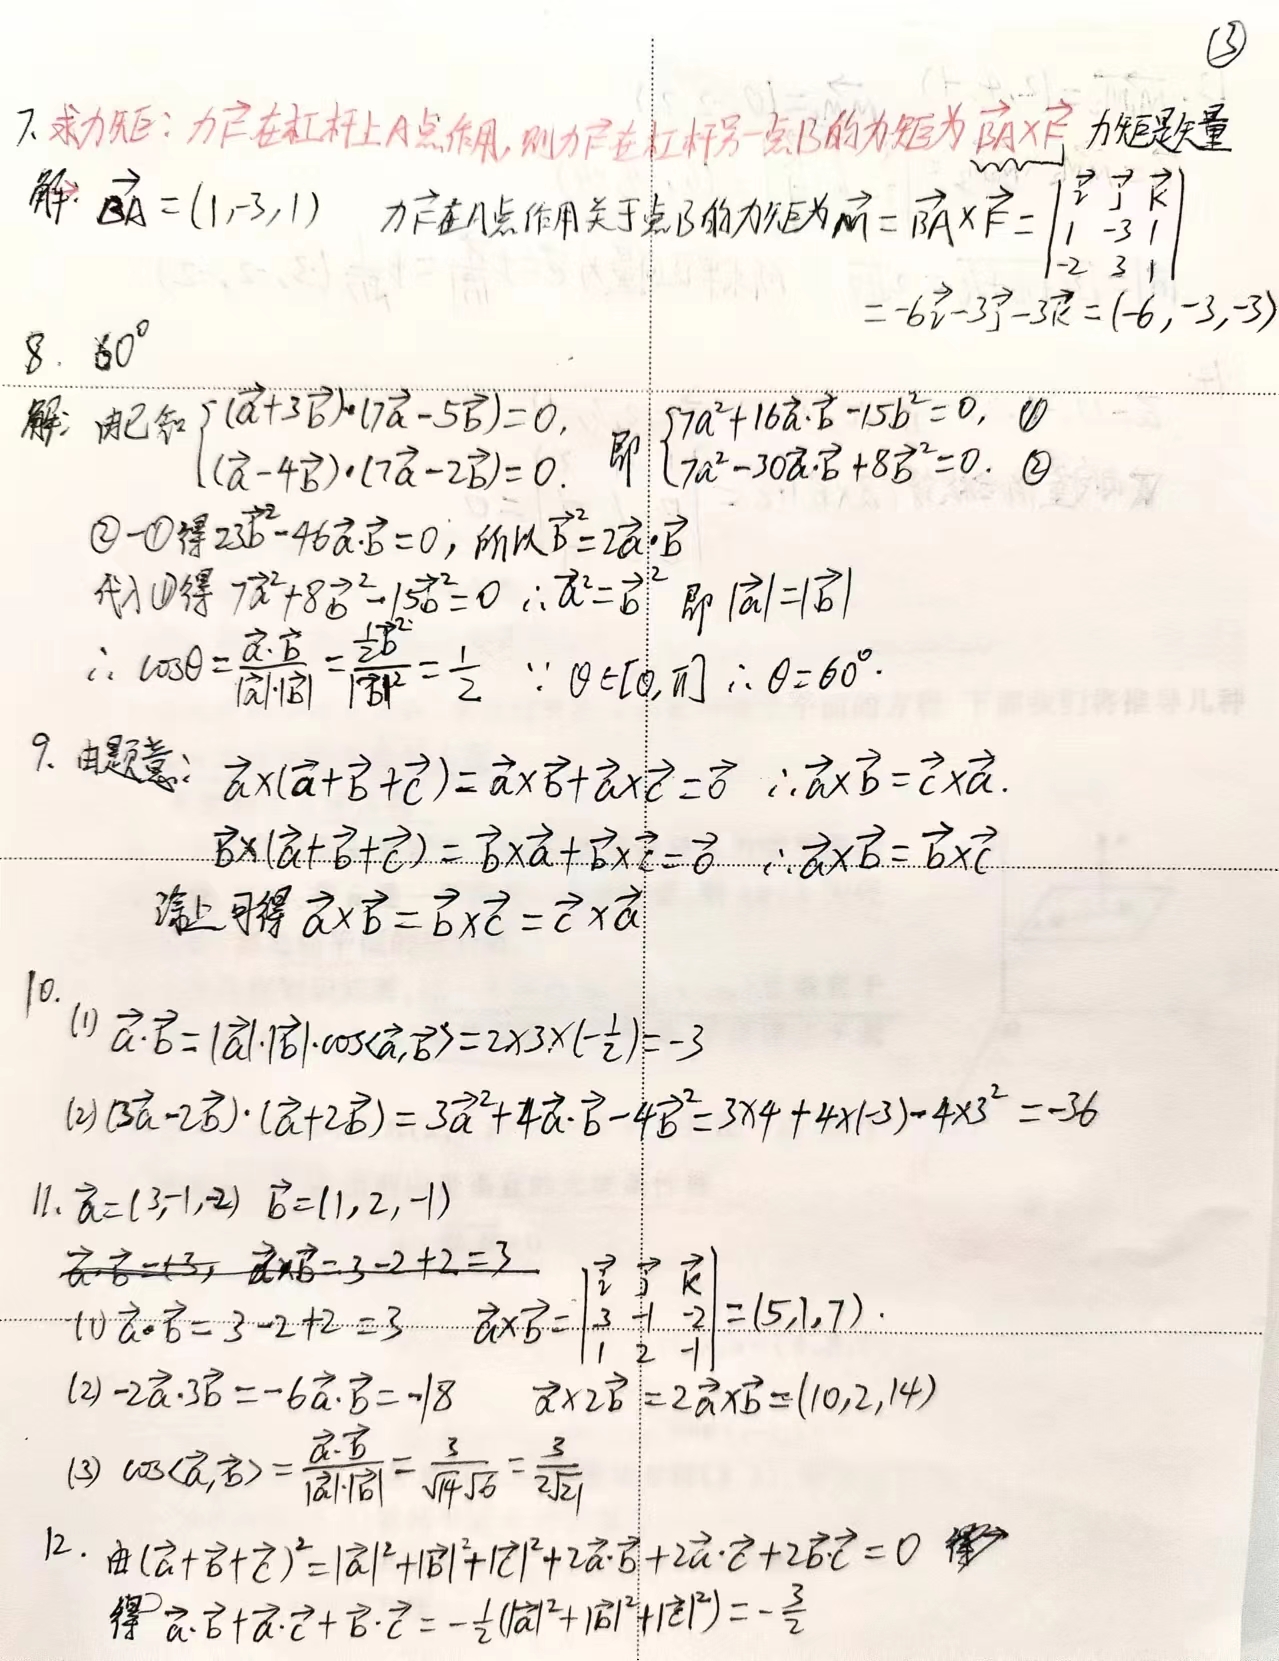 ③
7. 求力矩：力F⃗在杠杆上A点作用，则力F⃗在杠杆另一点B的力矩为 BA⃗×F⃗ 力矩是矢量
解. BA⃗=(1,-3,1) 力F⃗在A点作用关于点B的力矩为m⃗=BA⃗×F⃗=|i⃗ j⃗ k⃗; 1 -3 1; -2 3 1|
=-6i⃗-3j⃗-3k⃗=(-6,-3,-3)
8. 60°
解: 由已知{(a⃗+3b⃗)·(7a⃗-5b⃗)=0, (a⃗-4b⃗)·(7a⃗-2b⃗)=0. 即{7a²+16a⃗·b⃗-15b²=0, ① 7a²-30a⃗·b⃗+8b⃗²=0. ②
②-①得23b⃗²-46a⃗·b⃗=0, 所以b⃗²=2a⃗·b⃗
代入①得 7a⃗²+8b⃗²-15b⃗²=0 ∴a⃗²=b⃗² 即|a⃗|=|b⃗|
∴ cosθ=a⃗·b⃗/(|a⃗|·|b⃗|)=½b⃗²/|b⃗|²=1/2 ∵ θ∈[0,π] ∴θ=60°.
9. 由题意: a⃗×(a⃗+b⃗+c⃗)=a⃗×b⃗+a⃗×c⃗=0⃗ ∴a⃗×b⃗=c⃗×a⃗.
b⃗×(a⃗+b⃗+c⃗)=b⃗×a⃗+b⃗×c⃗=0⃗ ∴a⃗×b⃗=b⃗×c⃗
综上可得 a⃗×b⃗=b⃗×c⃗=c⃗×a⃗
10.
(1) a⃗·b⃗=|a⃗|·|b⃗|·cos<a⃗,b⃗>=2×3×(-1/2)=-3
(2) (3a⃗-2b⃗)·(a⃗+2b⃗)=3a⃗²+4a⃗·b⃗-4b⃗²=3×4+4×(-3)-4×3²=-36
11. a⃗=(3,-1,-2) b⃗=(1,2,-1)
(1) a⃗·b⃗=3-2+2=3 a⃗×b⃗=|i⃗ j⃗ k⃗; 3 -1 -2; 1 2 -1|=(5,1,7).
(2) -2a⃗·3b⃗=-6a⃗·b⃗=-18 a⃗×2b⃗=2a⃗×b⃗=(10,2,14)
(3) cos<a⃗,b⃗>=a⃗·b⃗/(|a⃗|·|b⃗|)=3/(√14√6)=3/(2√21)
12. 由(a⃗+b⃗+c⃗)²=|a⃗|²+|b⃗|²+|c⃗|²+2a⃗·b⃗+2a⃗·c⃗+2b⃗·c⃗=0
得 a⃗·b⃗+a⃗·c⃗+b⃗·c⃗=-1/2(|a⃗|²+|b⃗|²+|c⃗|²)=-3/2